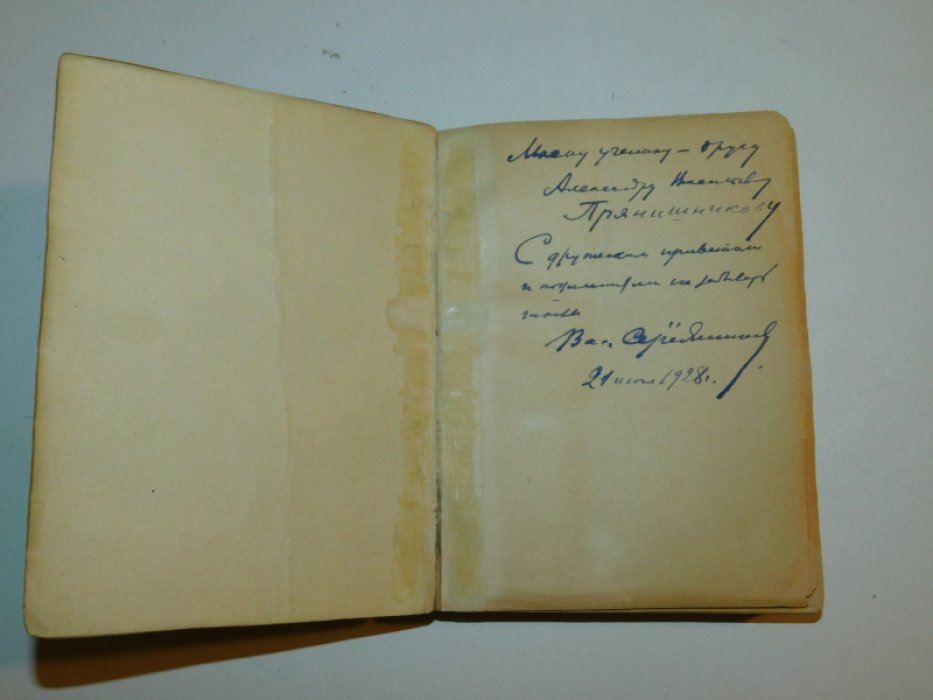 Моему ученику – другу
Александру Васильевичу
Прянишникову
С дружеским приветом
и пожеланиями не забывать
Вас. Серёдин
21 июля 1928 г.